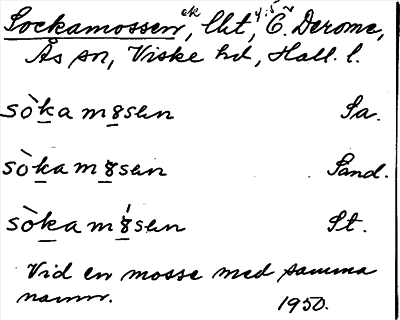 Sockamossen, lht, C. Derome,
Ås sn, Viske hd, Hall. l.
sòkamosen Sa.
sòkam8sen Sand.
sòkam8sen St.
Vid en mosse med samma
namn.
1950.